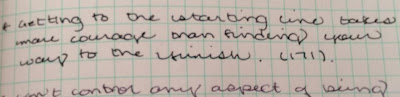 * Getting to the starting line takes
more courage than finding your
way to the finish. (171).
can't control any aspect of being